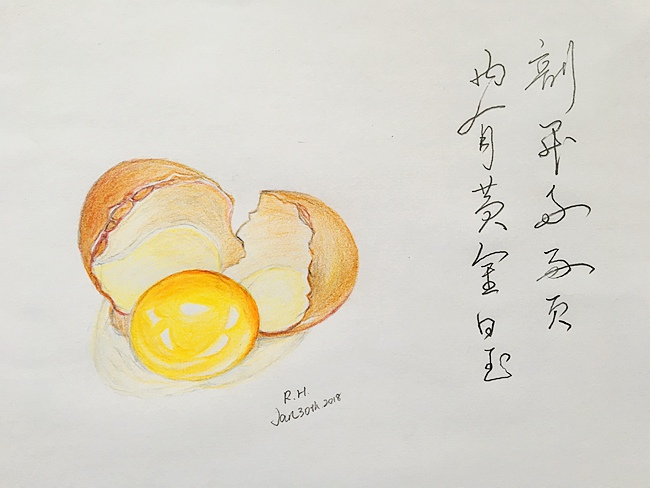 剖
内有黄金白玉
R.H.
Jan 30th 2018